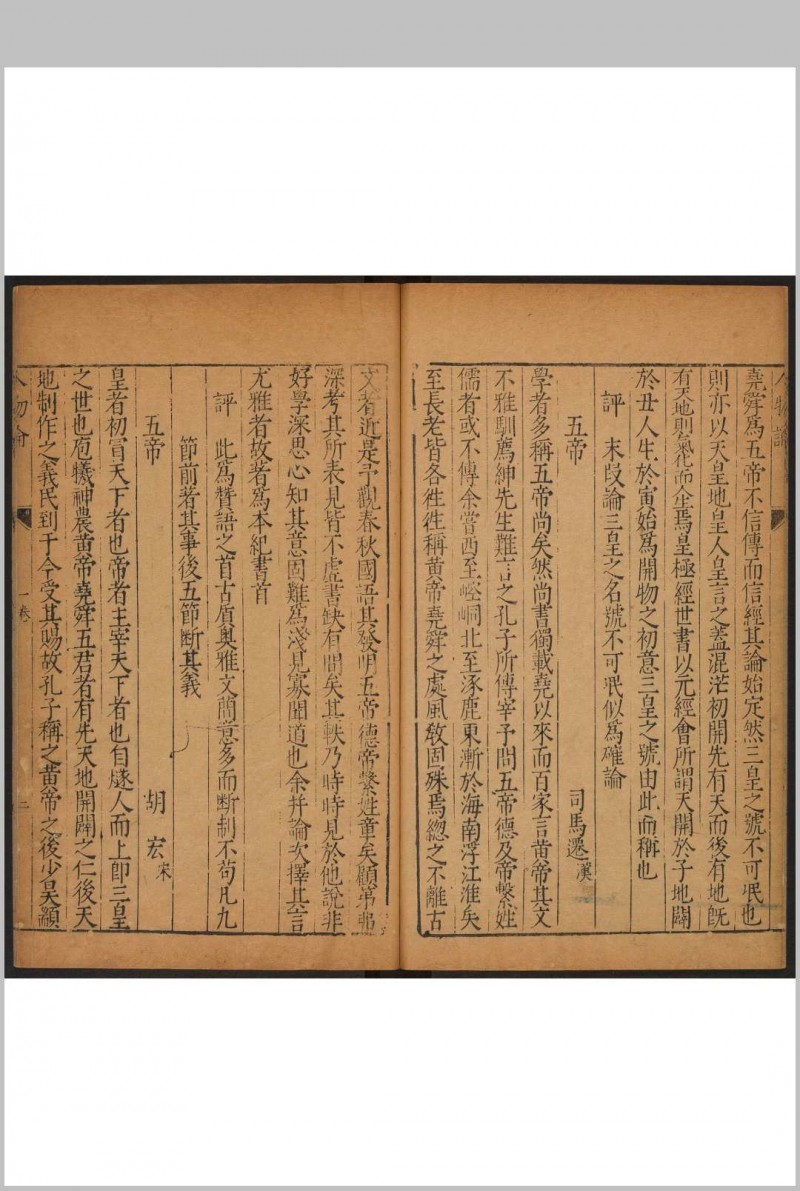 堯舜爲五帝不信傳而信經其論始定然三皇之號不可泯也
則亦以天皇地皇人皇言之蓋混茫初開先有天而後有地旣
有天地則氣化而人生焉皇極經世書以元經會所謂天開於子地闢
於丑人生於寅始爲開物之初意三皇之號由此而稱也
評 末段論三皇之名號不可泯似爲確論
五帝 司馬遷 漢
學者多稱五帝尚矣然尚書獨載堯以來而百家言黃帝其文
不雅馴薦紳先生難言之孔子所傳宰予問五帝德及帝繫姓
儒者或不傳余嘗西至崆峒北至涿鹿東漸於海南浮江淮矣
至長老皆各徃徃稱黃帝堯舜之處風敎固殊焉總之不離古
文者近是予觀春秋國語其發明五帝德帝繫姓章矣顧弟弗
深考其所表見皆不虛書缺有間矣其軼乃時時見於他說非
好學深思心知其意固難爲淺見寡聞道也余并論次擇其言
尤雅者故著爲本紀書首
評 此爲贊語之首古質奧雅文簡意多而斷制不苟凡九
節前著其事後五節斷其義
五帝 胡宏 宋
皇者初冒天下者也帝者主宰天下者也自燧人而上卽三皇
之世也庖犧神農黃帝堯舜五君者有先天地開闢之仁後天
地制作之義民到于今受其賜故孔子稱之黃帝之後少昊顓
人物論 一卷 二